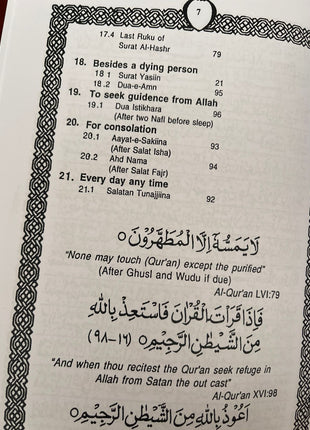 7
17.4 Last Ruku of
Surat Al-Hashr 79
18. Besides a dying person
18 1 Surat Yasiin 21
18.2 Dua-e-Amn 95
19. To seek guidence from Allah
19.1 Dua Istikhara 96
(After two Nafl before sleep)
20. For consolation
20.1 Aayat-e-Sakiina 93
(After Salat Isha)
20.2 Ahd Nama 94
(After Salat Fajr)
21. Every day any time
21.1 Salatan Tunajjiina 92
لَا يَمَسُّهٗٓ اِلَّا الْمُطَهَّرُوْنَ ○
“None may touch (Qur'an) except the purified”
(After Ghusl and Wudu if due)
Al-Qur'an LVI:79
فَاِذَا قَرَاْتَ الْقُرْاٰنَ فَاسْتَعِذْ بِاللّٰهِ
مِنَ الشَّيْطٰنِ الرَّجِيْمِ ○ (١٦–٩٨)
“And when thou recitest the Qur'an seek refuge in
Allah from Satan the out cast”
Al-Qur'an XVI:98
اَعُوْذُ بِاللّٰهِ مِنَ الشَّيْطٰنِ الرَّجِيْمِ ○